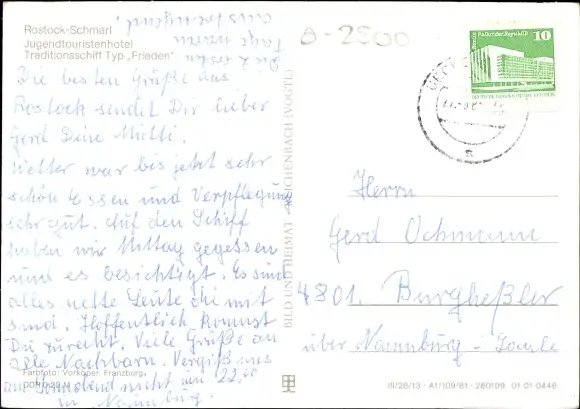 Rostock-Schmarl
Jugendtouristenhotel
Traditionsschiff Typ „Frieden"
Die 2 ersten
Tage waren
anstrengend.
Die besten Grüße aus
Rostock sendet Dir lieber
Gerd Deine Mutti.
Wetter war bis jetzt sehr
schön Essen und Verpflegung
sehr gut. Auf den Schiff
haben wir Mittag gegessen
und es besichtigt. Es sind
alles nette Leute die mit
sind. Hoffentlich kommst
Du zurecht. Viele Grüße an
alle Nachbarn. Vergiß uns
am Sonnabend nicht um 22.00
in Naumburg.
Farbfoto: Vorköper, Franzburg
BILD UND HEIMAT REICHENBACH (VOGTL)
III/26/13 · A1/109/81 · 280109 01 01 0446
0-2500
10
Herrn
Gerd Ochmann
4801 Burgheßler
über Naumburg - Saale